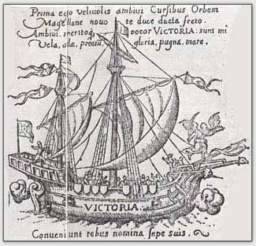 Prima ego velivolis ambivi Cursibus Orbem
Magellane novo te duce ducta freto.
Ambivi, meritoq vocor VICTORIA: sunt mi
Vela, alæ, precium, gloria, pugna, mare.
VICTORIA
Conveniunt rebus nomina sepe suis.